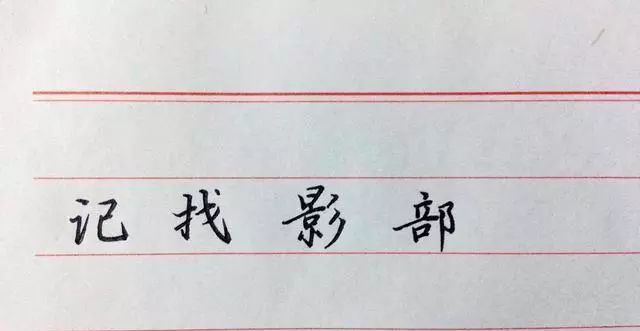 记找影部